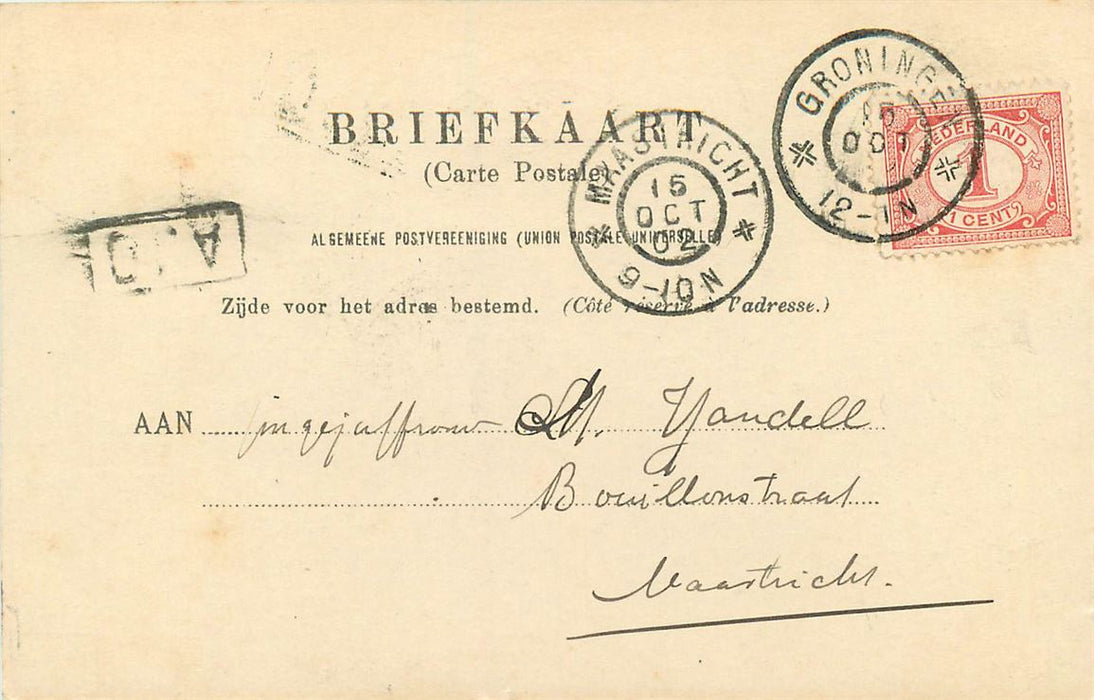 GRONINGEN
15
OCT
12-1N
NEDERLAND
1
1 CENT
BRIEFKAART
(Carte Postale)
MAASTRICHT
15
OCT
02
9-10N
ALGEMEENE POSTVEREENIGING (UNION POSTALE UNIVERSELLE)
Zijde voor het adres bestemd. (Côté réservé à l'adresse.)
AAN jongejuffrouw M. Yandell
Bouillonstraat
Maastricht.